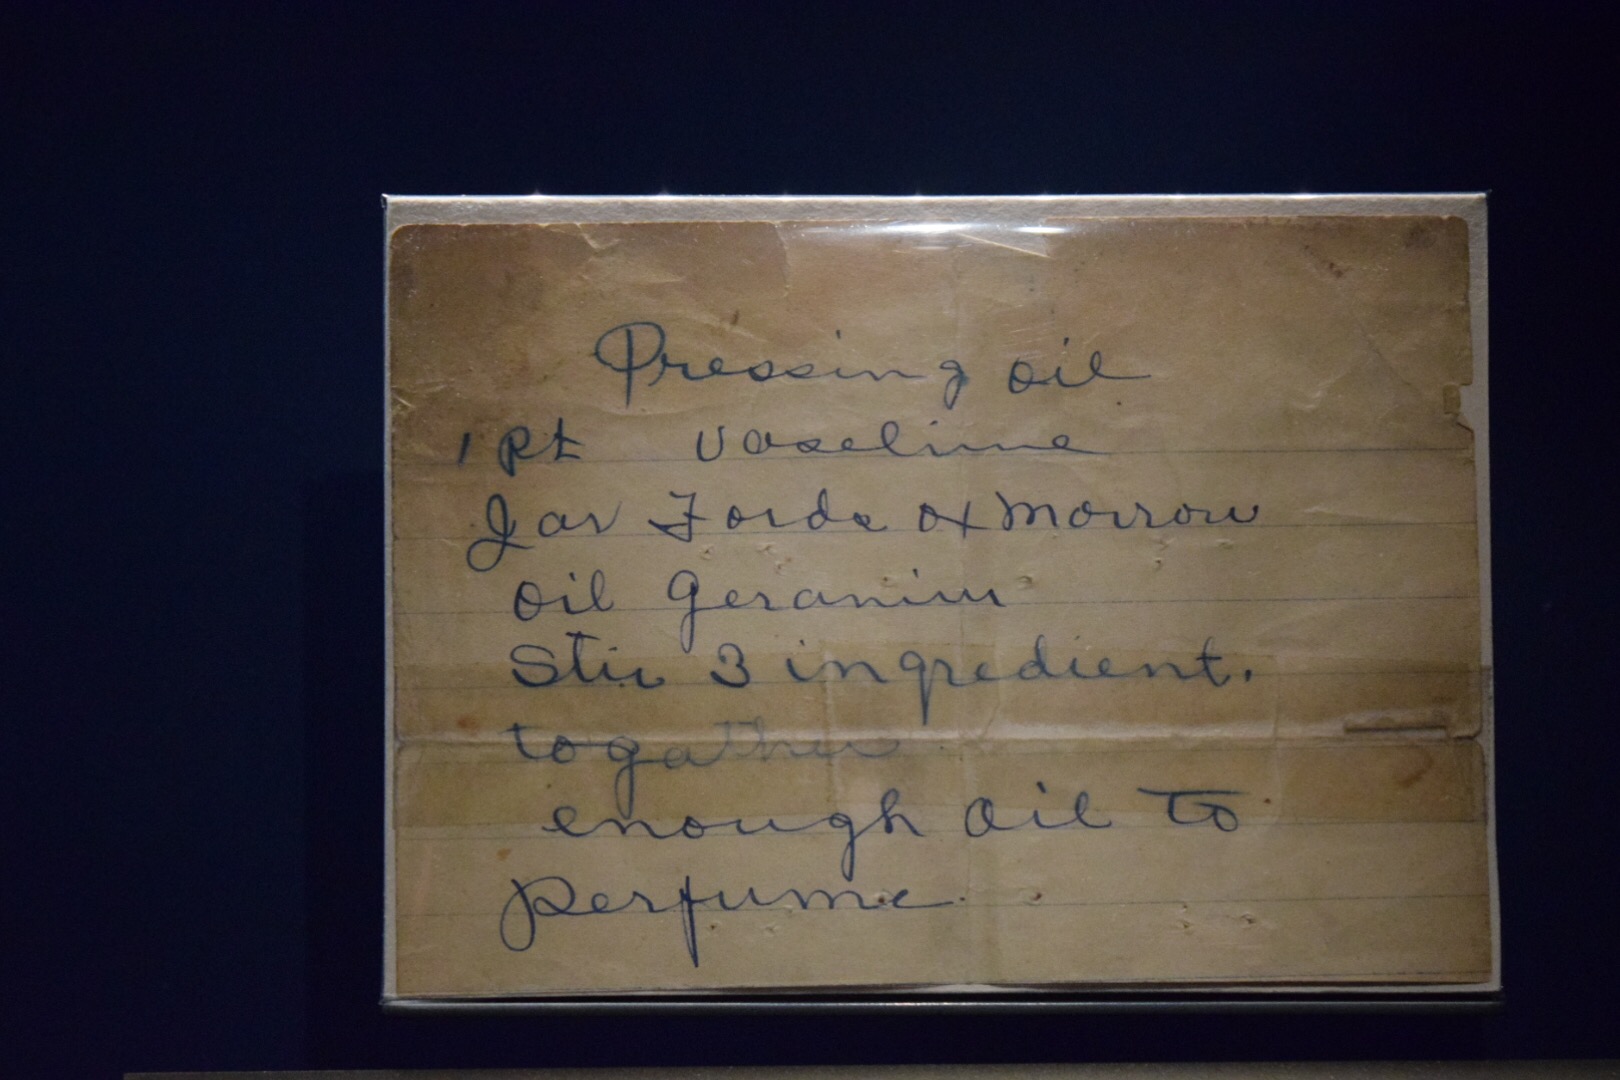 Pressing oil
1 Pt Vaseline
Jar Fords ox morrow
oil Geranium
Stir 3 ingredient.
togather
enough oil to
perfume.